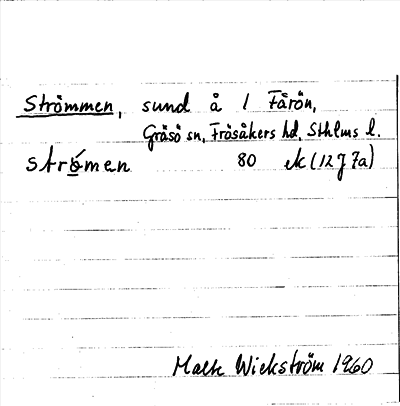 Strömmen, sund å / Fårön,
Gräsö sn, Frösåkers hd, Sthlms l.
strǿmen 80 ek (12 J 7a)
Wickström 1960